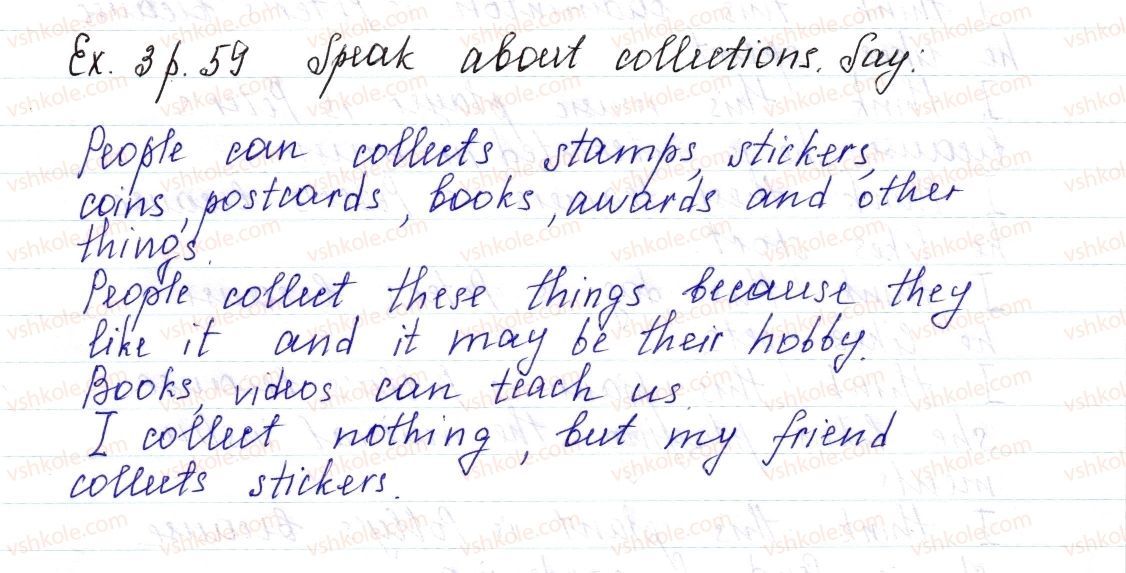 Ex. 3 p. 59 Speak about collections. Say:
People can collects stamps, stickers,
coins, postcards, books, awards and other
things.
People collect these things because they
like it and it may be their hobby.
Books, videos can teach us.
I collect nothing, but my friend
collects stickers.